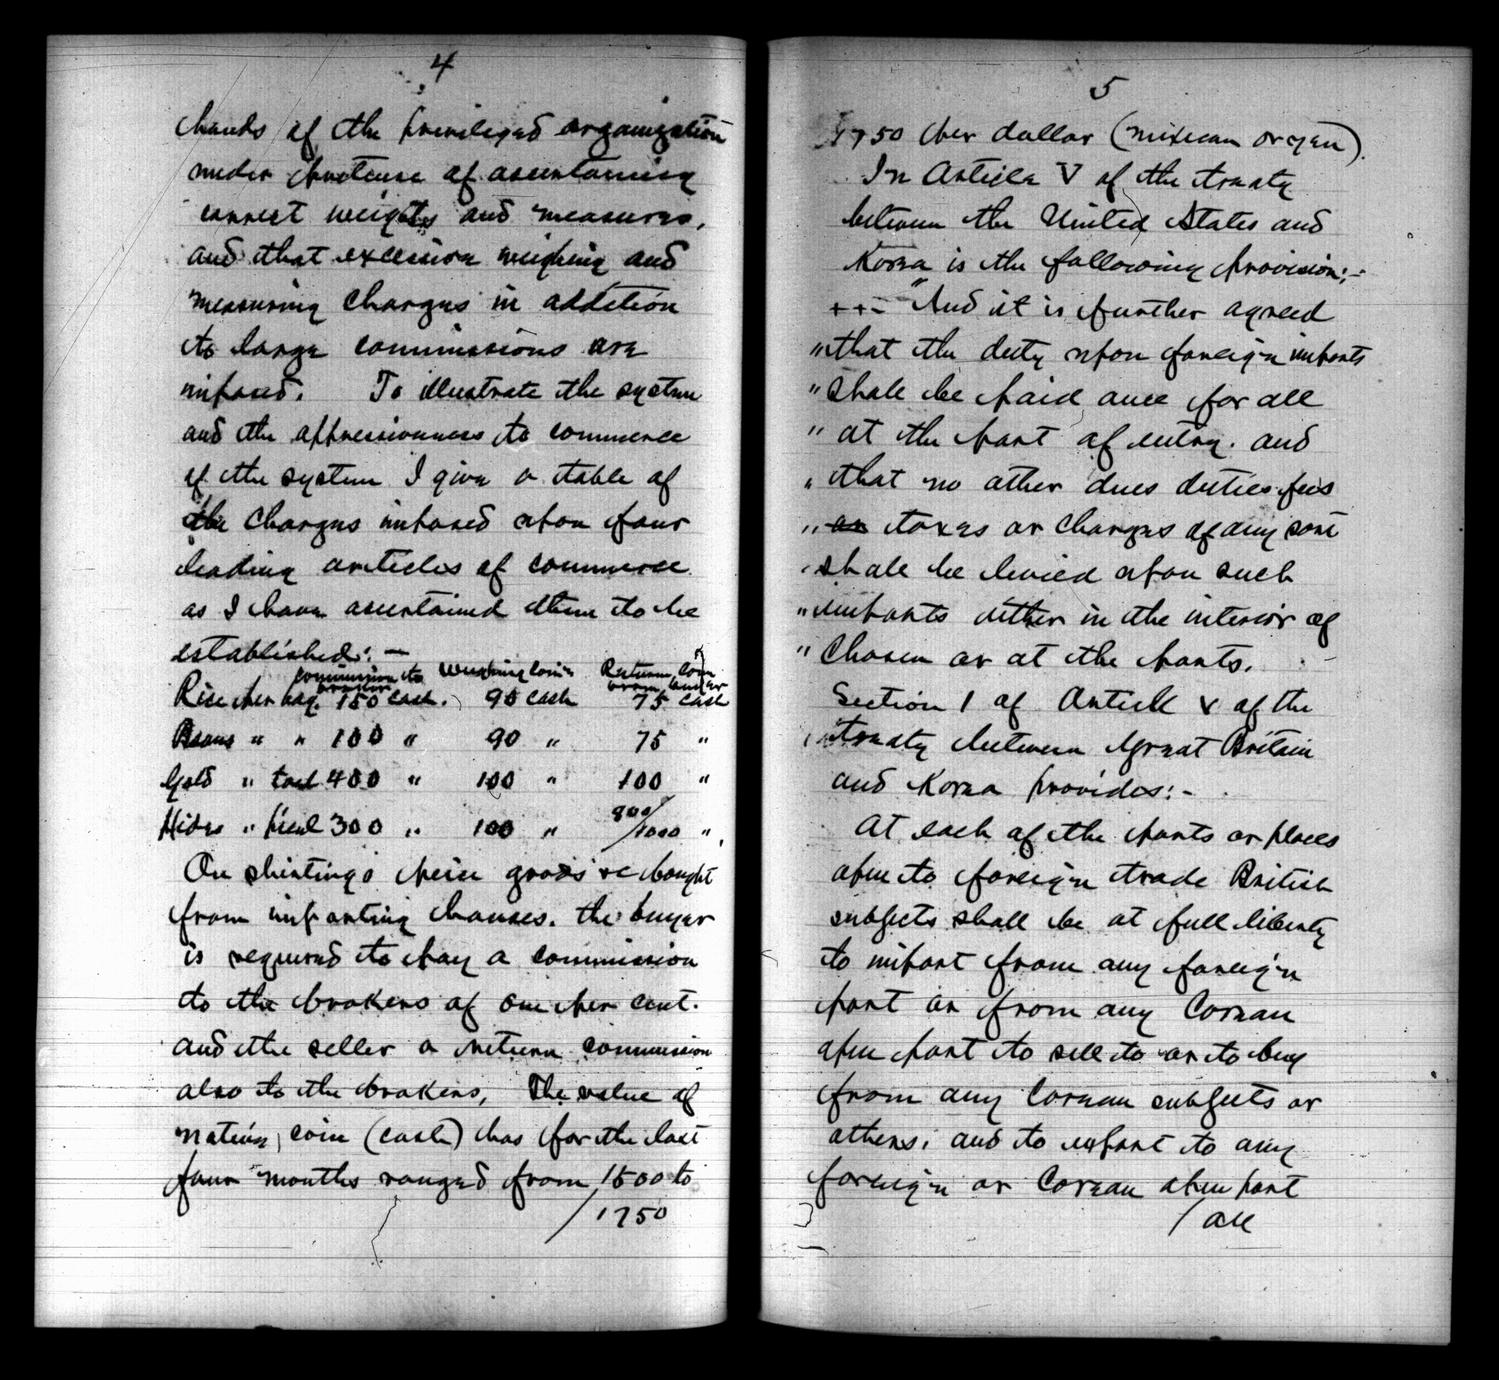 4
hands of the privileged organization
under pretense of ascertaining
correct weights and measures,
and that excessive weighing and
measuring charges in addition
to large commissions are
imposed. To illustrate the system
and the oppressiveness to commerce
of the system I give a table of
the charges imposed upon four
leading articles of commerce
as I have ascertained them to be
established:—
Commission to broker Weighing Coin Return Com from buyer
Rice per bag. 150 cash. 90 cash 75 cash
Beans " " 100 " 90 " 75 "
Gold " tael 400 " 100 " 100 "
Hides " picul 300 " 100 " 800/1000 "
On shirtings piece goods &c bought
from importing houses. the buyer
is required to pay a commission
to the brokers of one per cent.
and the seller a return commission
also to the brokers, The value of
native coin (cash) has for the last
four months ranged from 1500 to
/1750
5
1750 per dollar (mexican or yen).
In Article V of the treaty
between the United States and
Korea is the following provision:-
++- "And it is further agreed
"that the duty upon foreign imports
"shall be paid once for all
"at the port of entry. and
"that no other dues duties fees
"or taxes or charges of any sort
"shall be levied upon such
"imports either in the interior of
"Chosen or at the ports.
Section 1 of Article V of the
treaty between Great Britain
and Korea provides:-
At each of the ports or places
open to foreign trade British
subjects shall be at full liberty
to import from any foreign
port or from any Corean
open port to sell to or to buy
from any Corean subjects or
others, and to export to any
foreign or Corean open port
/all